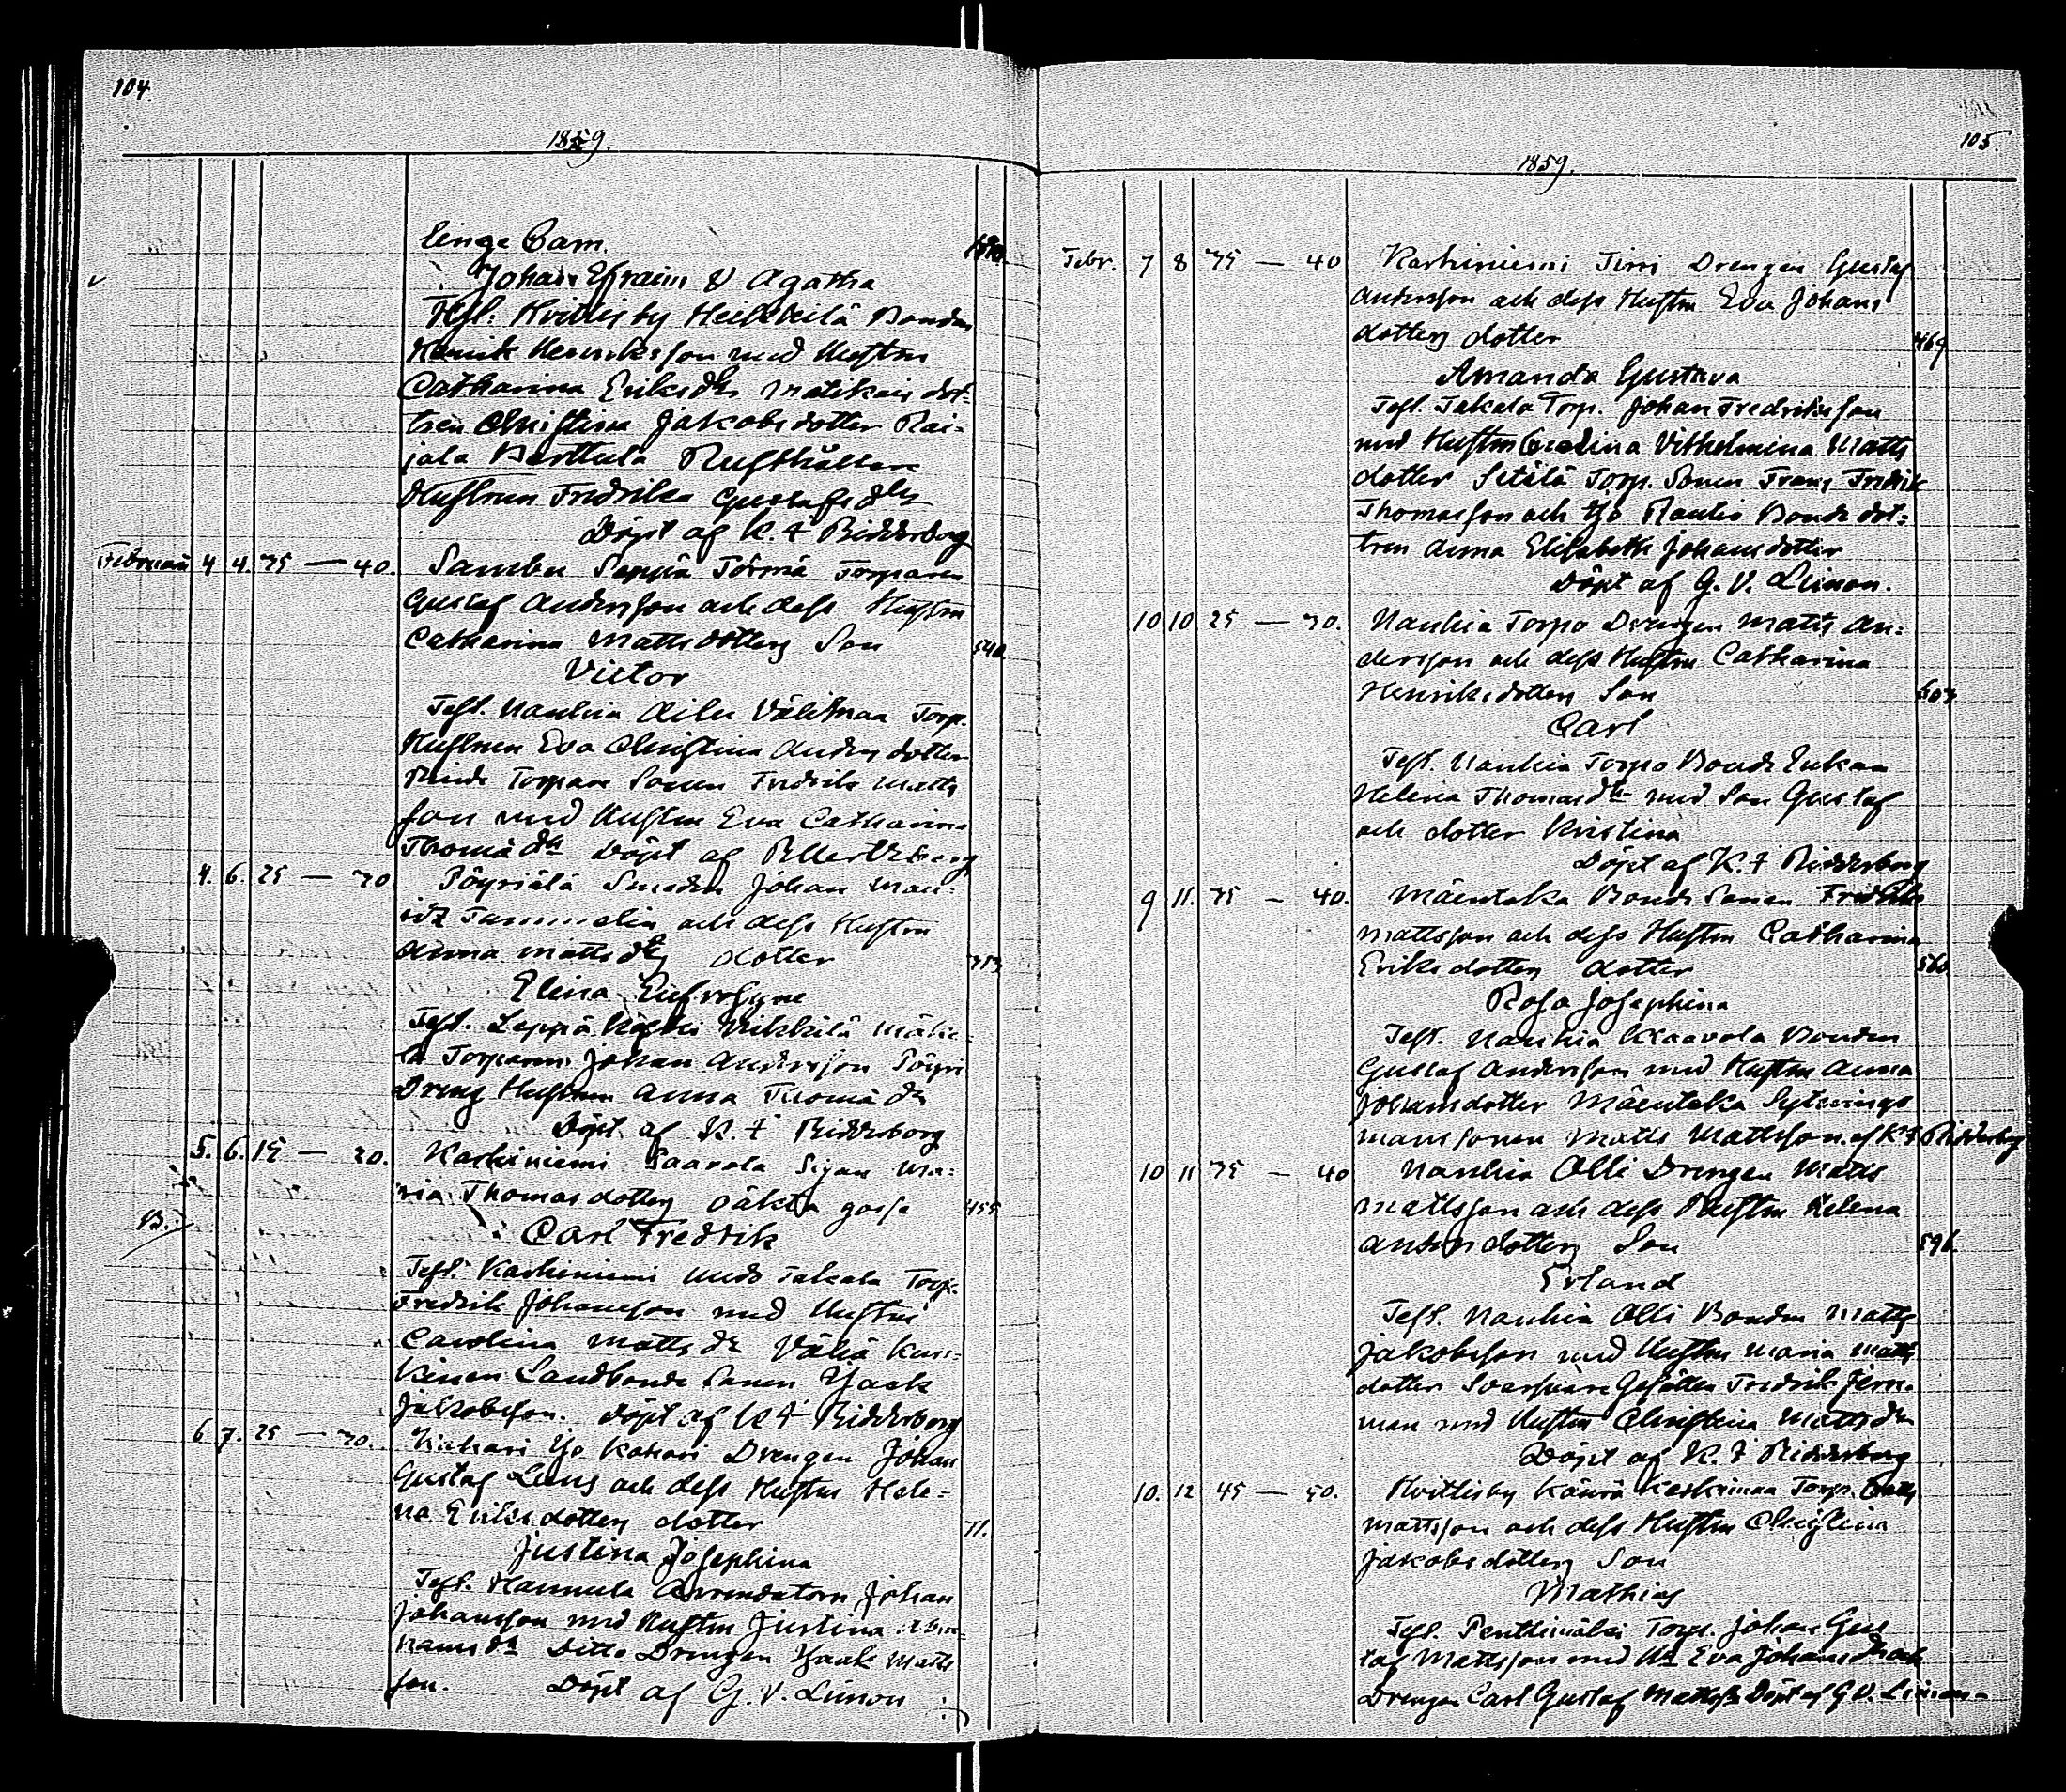 104.
1859.
linge Barn.
Johan Efraim & Agatha
Test. Hvittisby Heikkilä Bonden
Henrik Henriksson med Hustru
Catharina Eriksdtr dot-
tren Christina Jakobsdotter Rai-
jala Perttula Rusthållare
Hustrun Fredrika Gustafsdtr
Döpt af K. F Ridderborg
Februari 4 4. 75 — 40. Sambu Seppä Törmä Torparen
Gustaf Andersson och dess Hustru
Catharina Mattsdotters Son 540.
Victor
Test. Nauhia Äilu Välimaa Torp.
Hustrun Eva Christina Anders dotter
Torpare Sonen Fredrik Matts
son med Hustru Eva Catharina
Thomädtr Döpt af
4. 6. 25 — 70. Pöyriälä Smeden Johan Mau-
itz Tammelin och dess Hustru
Anna Mattsdtrs dotter 313
Elina Eufrosyne
Test. Leppäkoski Virkkilä Mäke-
lä Torparen Johan Andersson Pöyri
Dreng Hustrun Anna Thomädtr
Döpt af K. F Ridderborg
5. 6. 15 — 20. Karhiniemi Paavola Pigan Ma-
ria Thomasdotters oäkta gosse 455
Carl Fredrik
B.
Test. Karhiniemi Uudo Takala Torp.
Fredrik Johansson med Hustru
Carolina Mattsdr Väliä Kun-
kinen Landbonde Sonen Isaak
Jakobsson. Döpt af K F Ridderborg
6 7. 25 — 70. Kiukari Yso Kahari Drengen Johan
Gustaf Lens och dess Hustru Hele-
na Eriksdotters dotter 71.
Justina Josephina
Test. Hannula Arrendatorn Johan
Johansson med Hustru Justina Abra-
hamsdr Ditto Drengen Isaak Matts
son. Döpt af G. V. Limon
105.
1859.
Febr. 7 8 75 — 40 Karhiniemi Jirri Drengen Gustaf
Andersson och dess Hustru Eva Johans
dotters dotter 469
Amanda Gustava
Test. Takala Torp. Johan Fredriksson
med Hustru Carolina Vilhelmina Matts
dotter Setälä Torp. Sonen Frans Fredrik
Thomasson och Yso Raulio Bonde dot-
tren Anna Elisabeth Johansdotter
Döpt af G. V. Limon.
10 10 25 — 70. Nauhia Torpo Drengen Matts An-
dersson och dess Hustru Catharina
Henriksdotters Son 603
Carl
Test. Nauhia Torpo Bonde Enkan
Helena Thomasdtr med Son Gustaf
och dotter Kristina
Döpt af K. F Ridderborg
9 11. 75 — 40. Mäentaka Bonde Sonen Fredrik
Mattsson och dess Hustru Catharina
Eriksdotters dotter 560
Rosa Josephina
Test. Nauhia Klaavola Bonden
Gustaf Andersson med Hustru Anna
Johansdotter Mäentaka Sytnings
mans sonen Matts Mattsson. af K F Ridderborg
10 11 75 — 40 Nauhia Olli Drengen Matts
Mattsson och dess Hustru Helena
Andersdotters Son 596.
Erland
Test. Nauhia Olli Bonden Matts
Jakobsson med Hustru Maria Matts
dotter Svarfvare Gesällen Fredrik Jern-
man med Hustru Christina Mattsdtr
Döpt af K. F Ridderborg
10. 12 45 — 50. Hvittisby Käurä Keskimaa Torp. Matts
Mattsson och dess Hustru Christina
Jakobsdotters Son
Mathias
Test. Penttimäki Torp. Johan Gus
taf Mattsson med Hu Eva Johansdtr och
Drengen Carl Gustaf Mattss. Döpt af G V. Limon